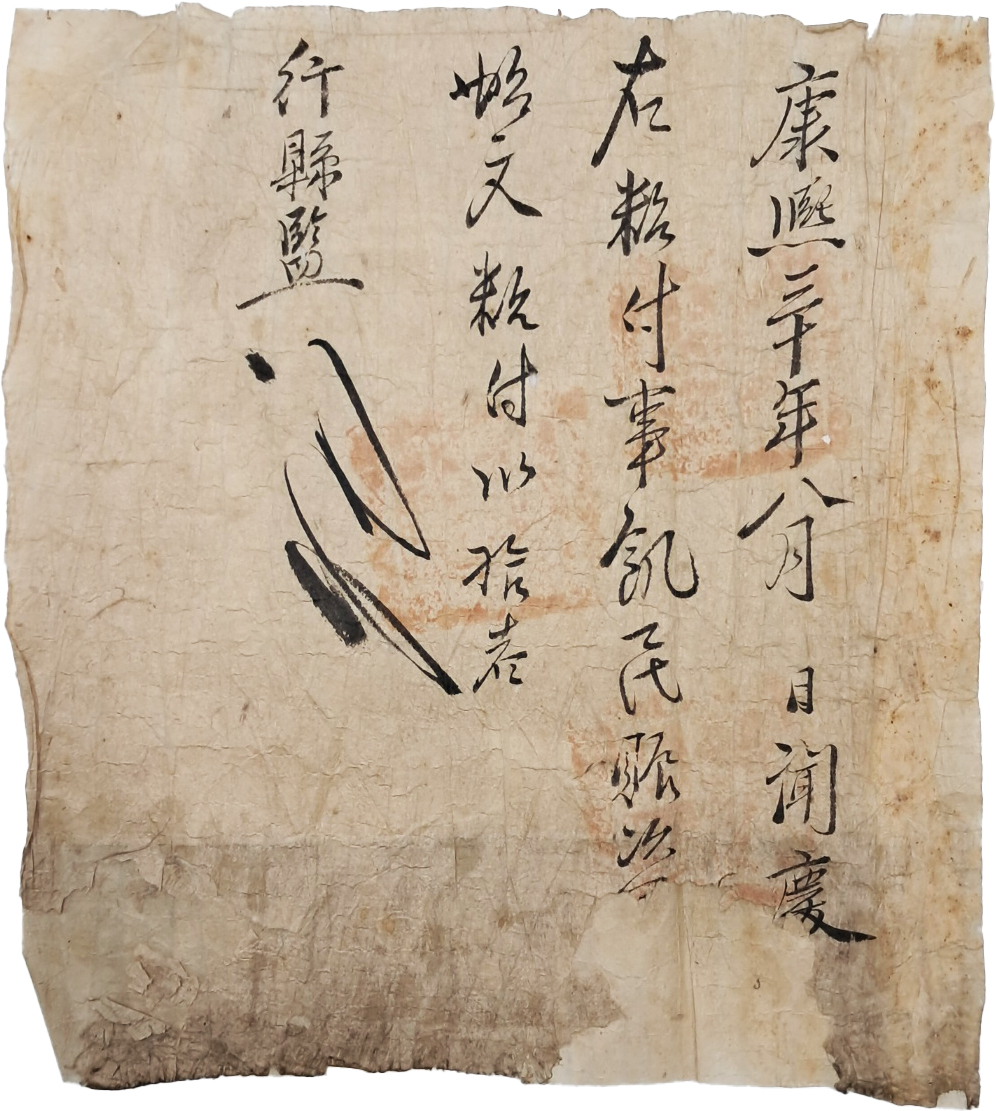 康熙三十年八月 日聞慶
右粘付事飢民賑資
文粘付以拾
行縣監